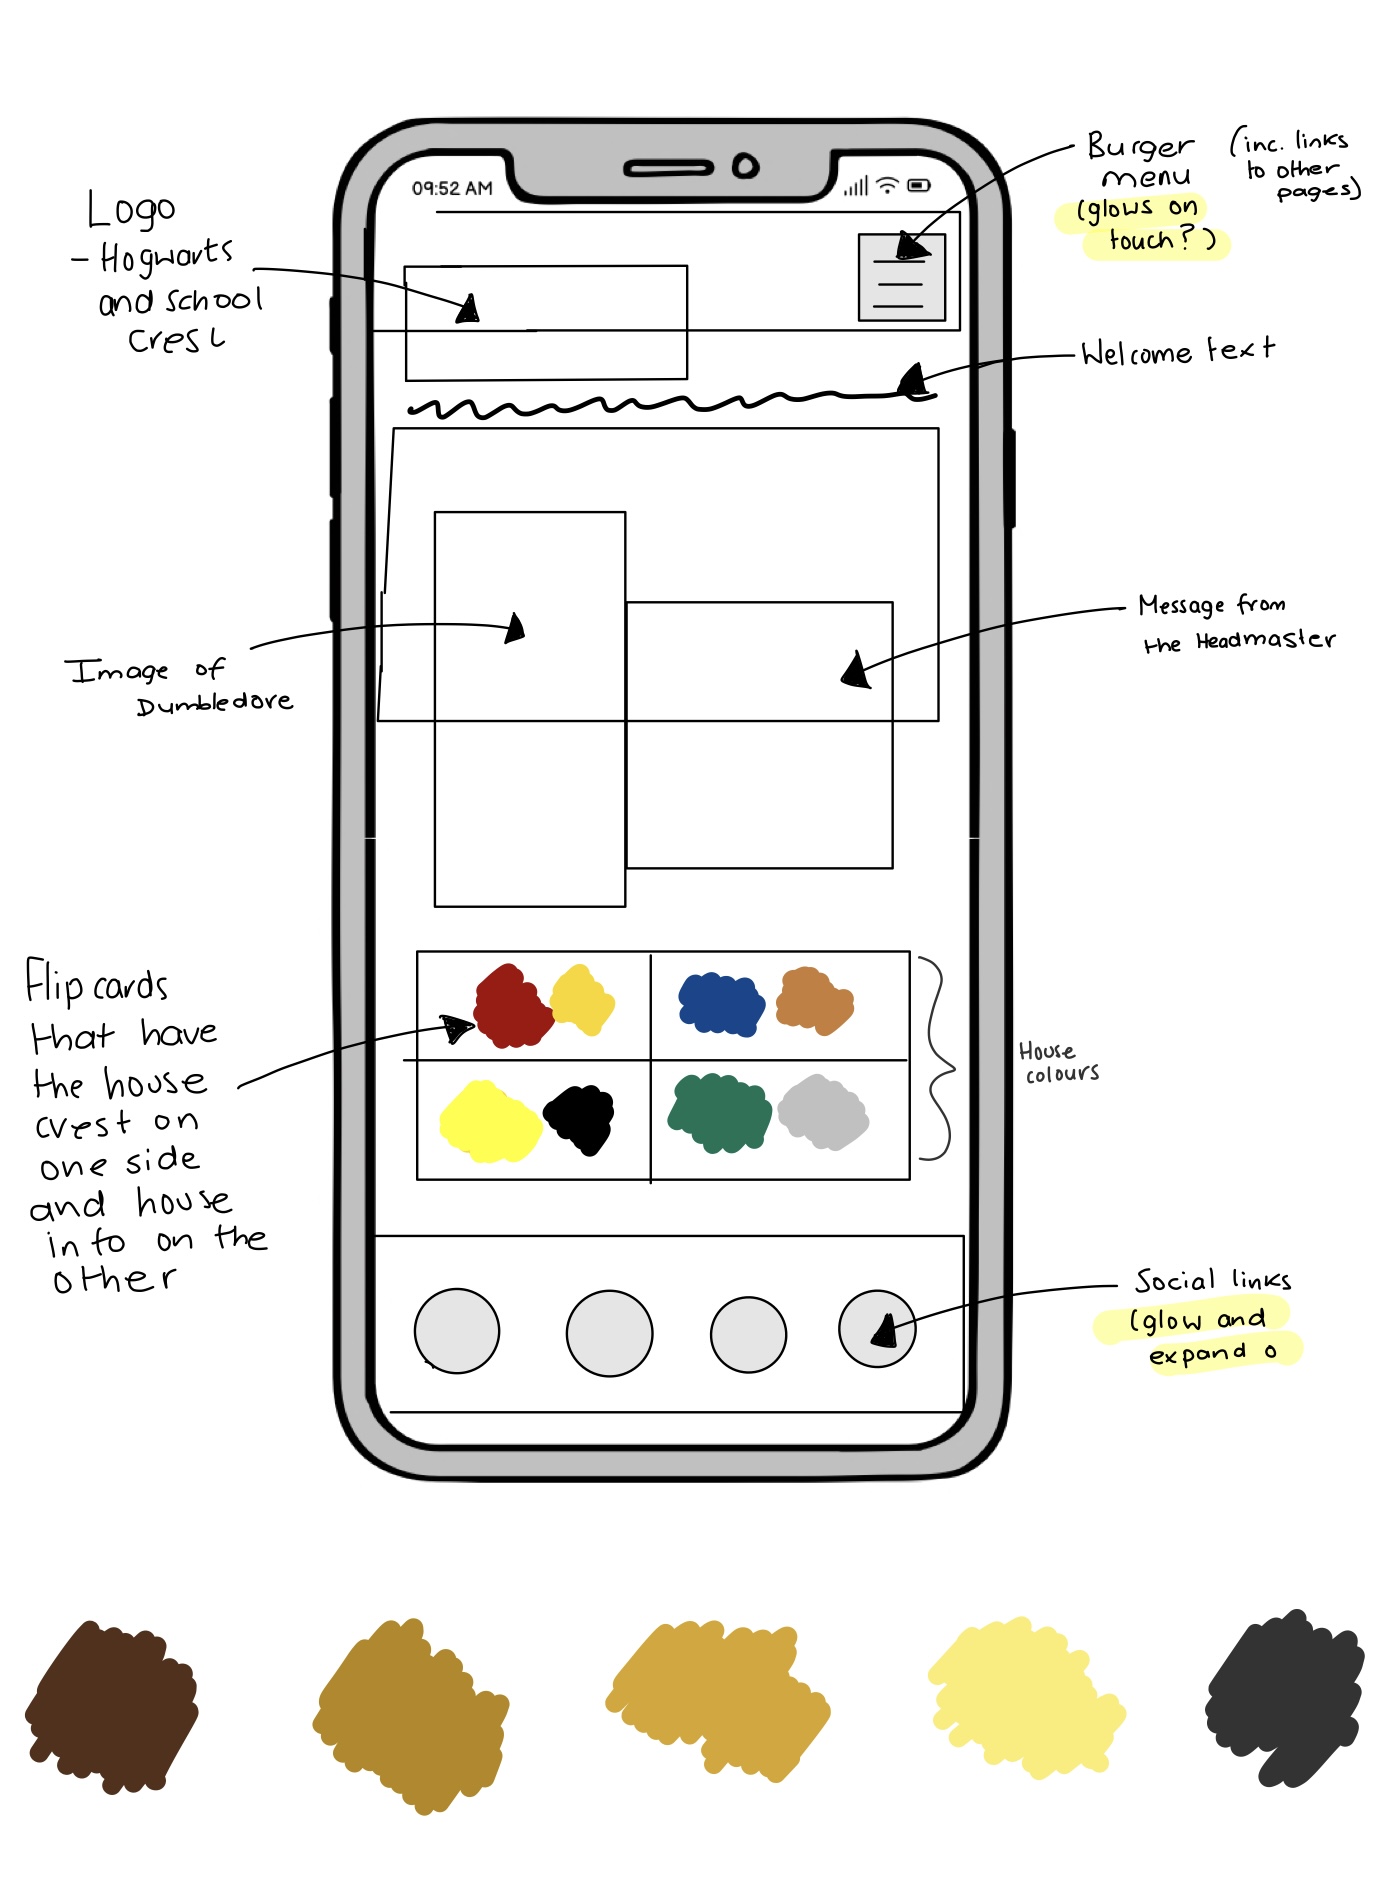 09:52 AM
Logo
- Hogwarts
and school
crest
Burger
menu
(glows on
touch?)
(inc. links
to other
pages)
Welcome text
Image of
Dumbledore
Message from
the Headmaster
Flip cards
that have
the house
crest on
one side
and house
info on the
other
House
colours
Social links
(glow and
expand o